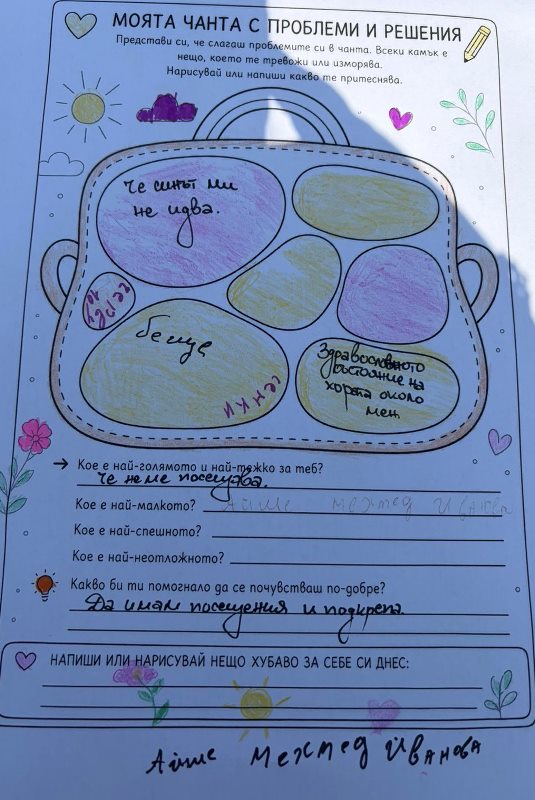 МОЯТА ЧАНТА С ПРОБЛЕМИ И РЕШЕНИЯ
Представи си, че слагаш проблемите си в чанта. Всеки камък е
нещо, което те тревожи или изморява.
Нарисувай или напиши какво те притеснява.
Че синът ми
не идва.
беще
сенки
Здравословното
състояние на
хората около
мен
Кое е най-голямото и най-тежко за теб?
Че не ме посещава.
Кое е най-малкото? Айше мехмед Иванова
Кое е най-спешното?
Кое е най-неотложното?
Какво би ти помогнало да се почувстваш по-добре?
Да имам посещения и подкрепа.
НАПИШИ ИЛИ НАРИСУВАЙ НЕЩО ХУБАВО ЗА СЕБЕ СИ ДНЕС:
Айше Мехмед Иванова